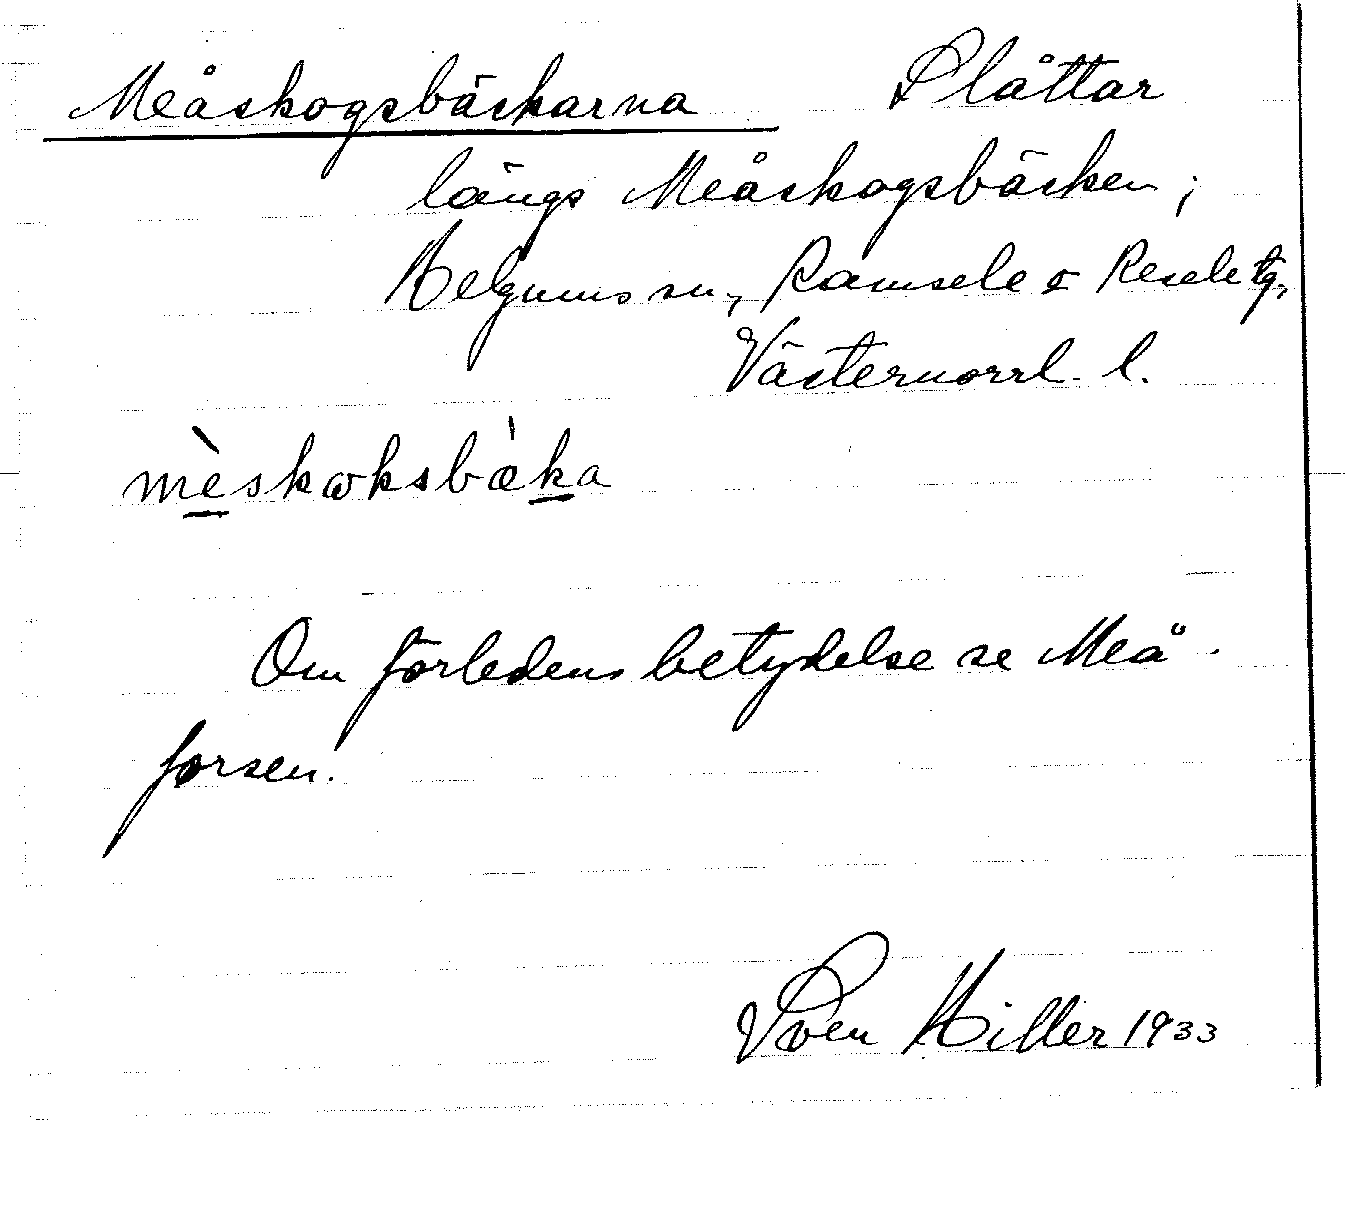 Meåskogsbäckarna Slåttar
längs Meåskogsbäcken;
Helgums sn, Ramsele o Resele tg,
Västernorrl. l.
mèskωksbæ̀ka
Om förledens betydelse se Meå-
forsen.
Sven Hiller 1933